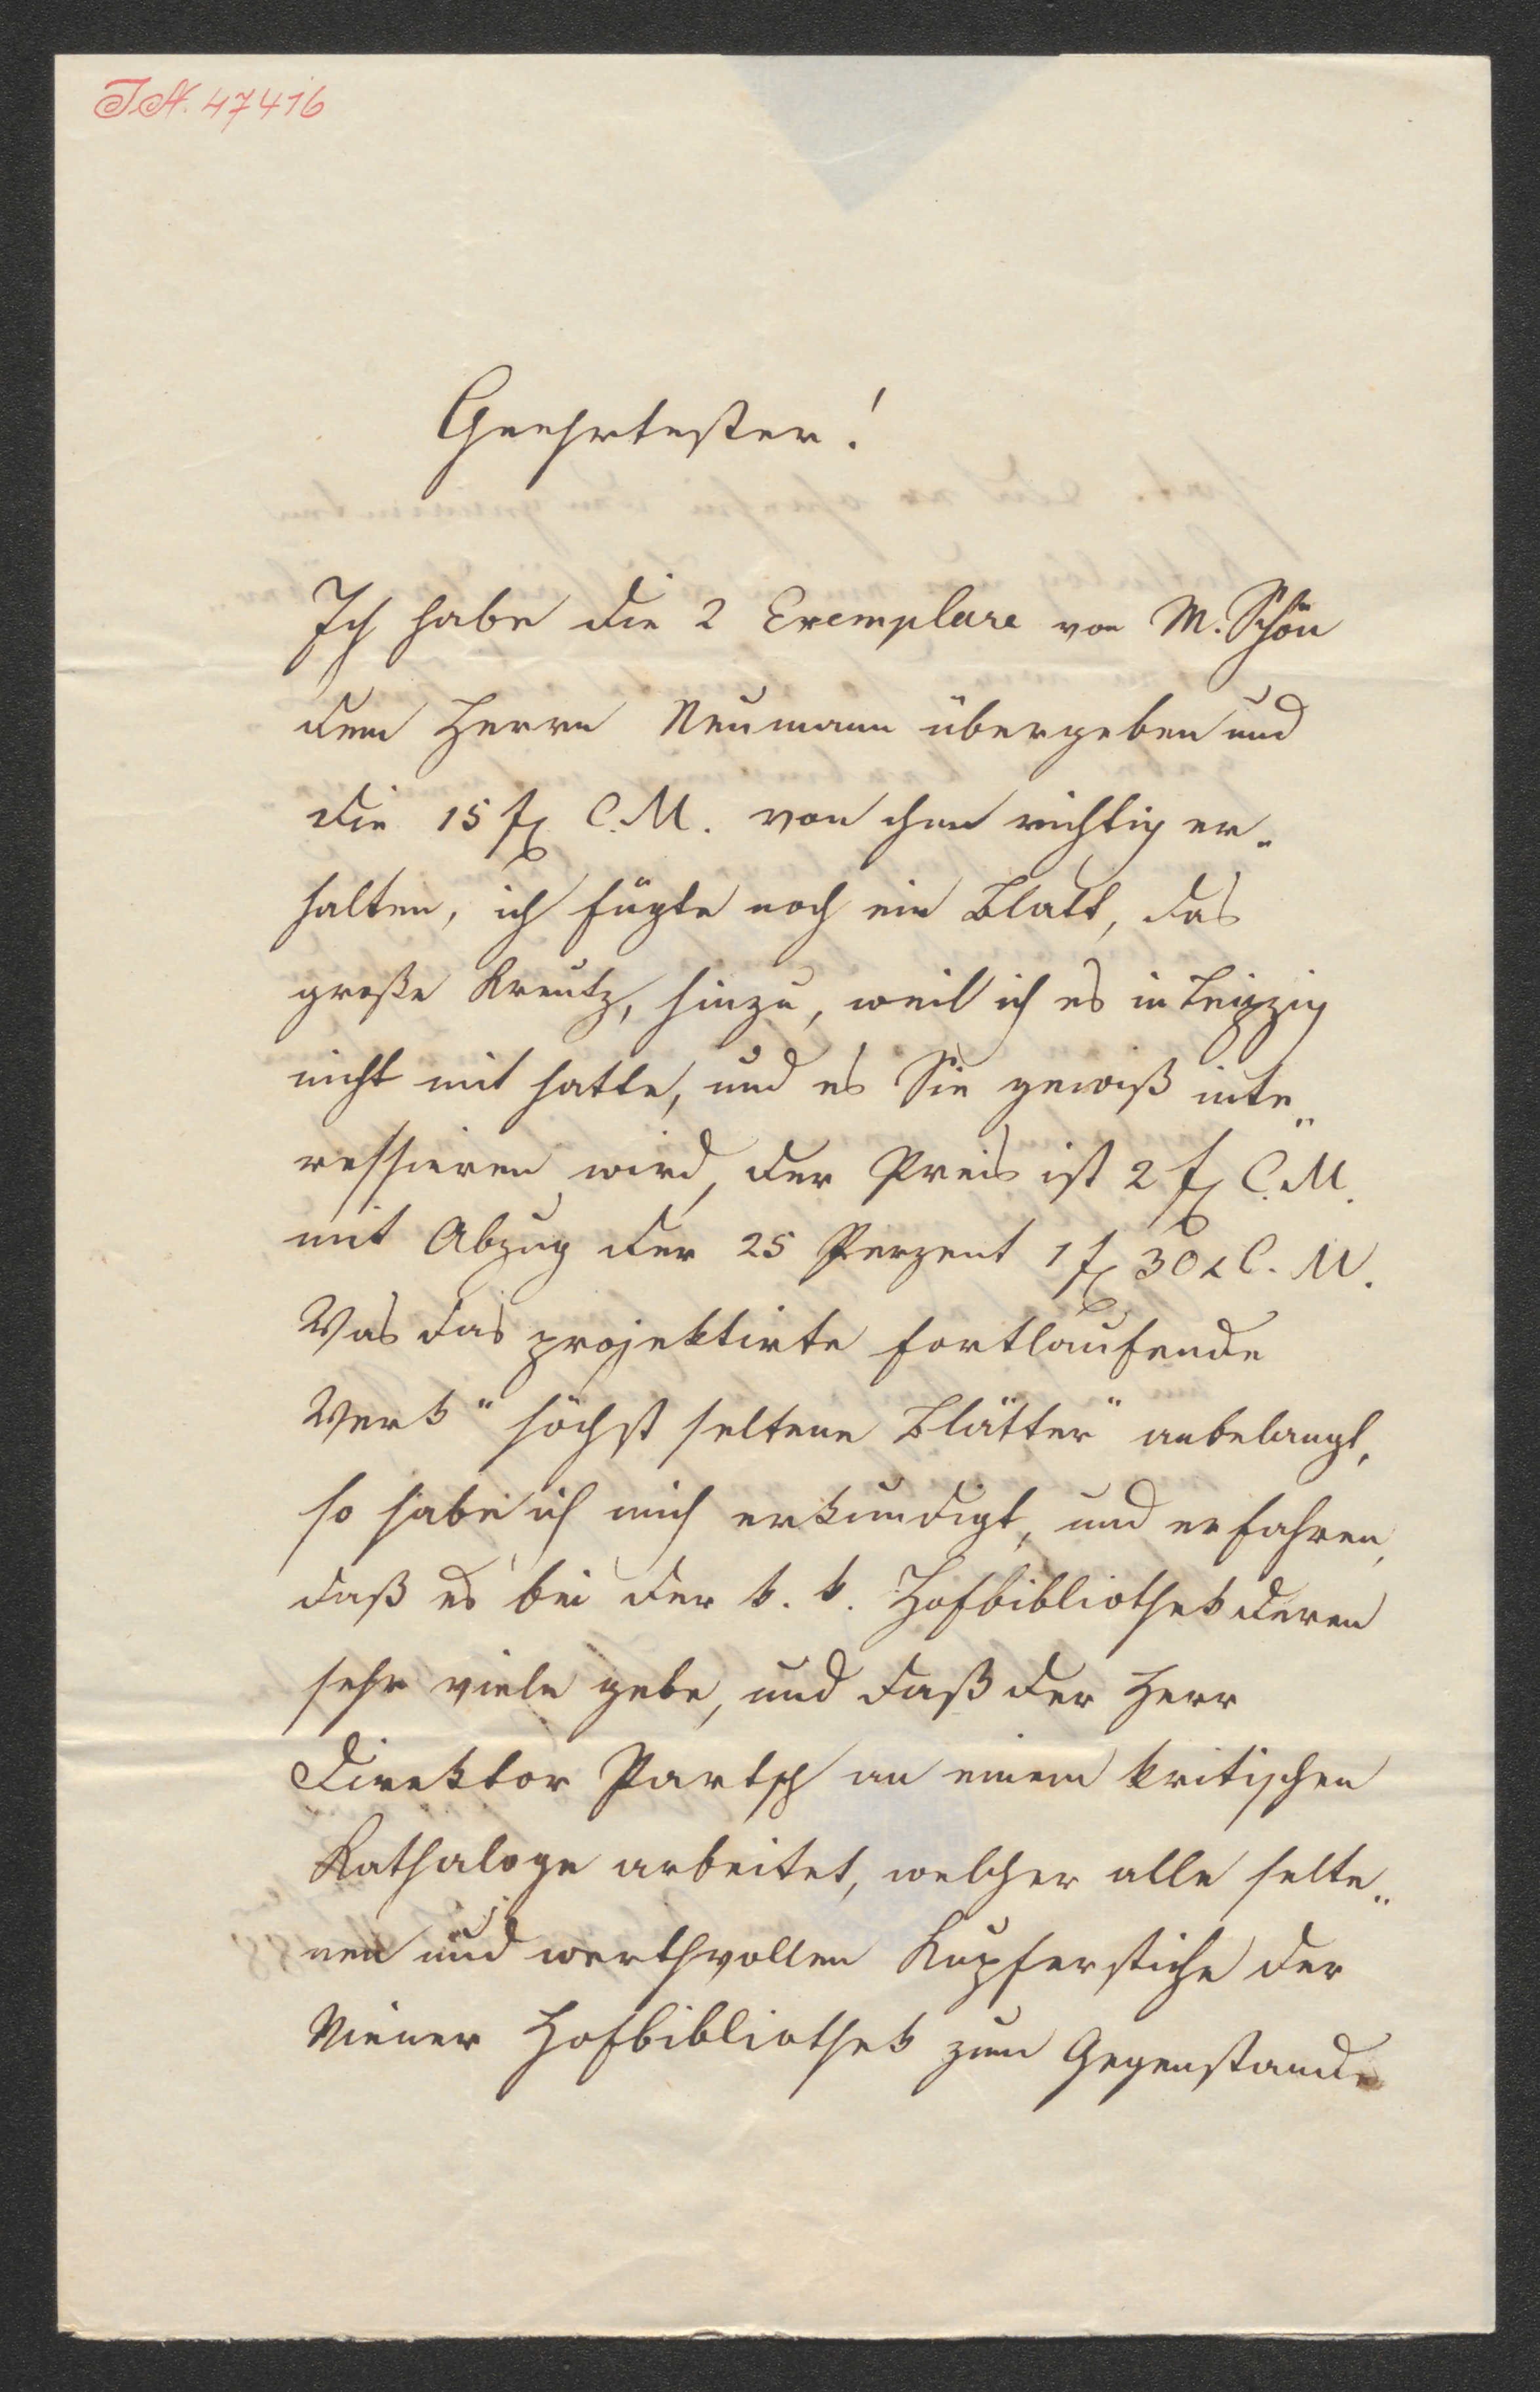 I.N. 47416
Geehrtester!
Ich habe die 2 Exemplare von M. Schön
dem Herrn Neumann übergeben und
die 15 fl C.M. von ihm richtig er-
halten, ich fügte noch ein Blatt, das
große Kreutz, hinzu, weil ich es in Leipzig
nicht mit hatte, und es Sie gewiß inte-
ressieren wird, der Preis ist 2 fl C.M.
mit Abzug der 25 Perzent 1 fl 30 x C.M.
Was das projektirte fortlaufende
Werk "höchst seltene Blätter" anbelangt,
so habe ich mich erkundigt, und erfahren,
daß es bei der k. k. Hofbibliothek deren
sehr viele gebe, und daß der Herr
Direktor Partsch an einem kritischen
Kathaloge arbeitet, welcher alle selte-
nen und werthvollen Kupferstiche der
Wiener Hofbibliothek zum Gegenstande